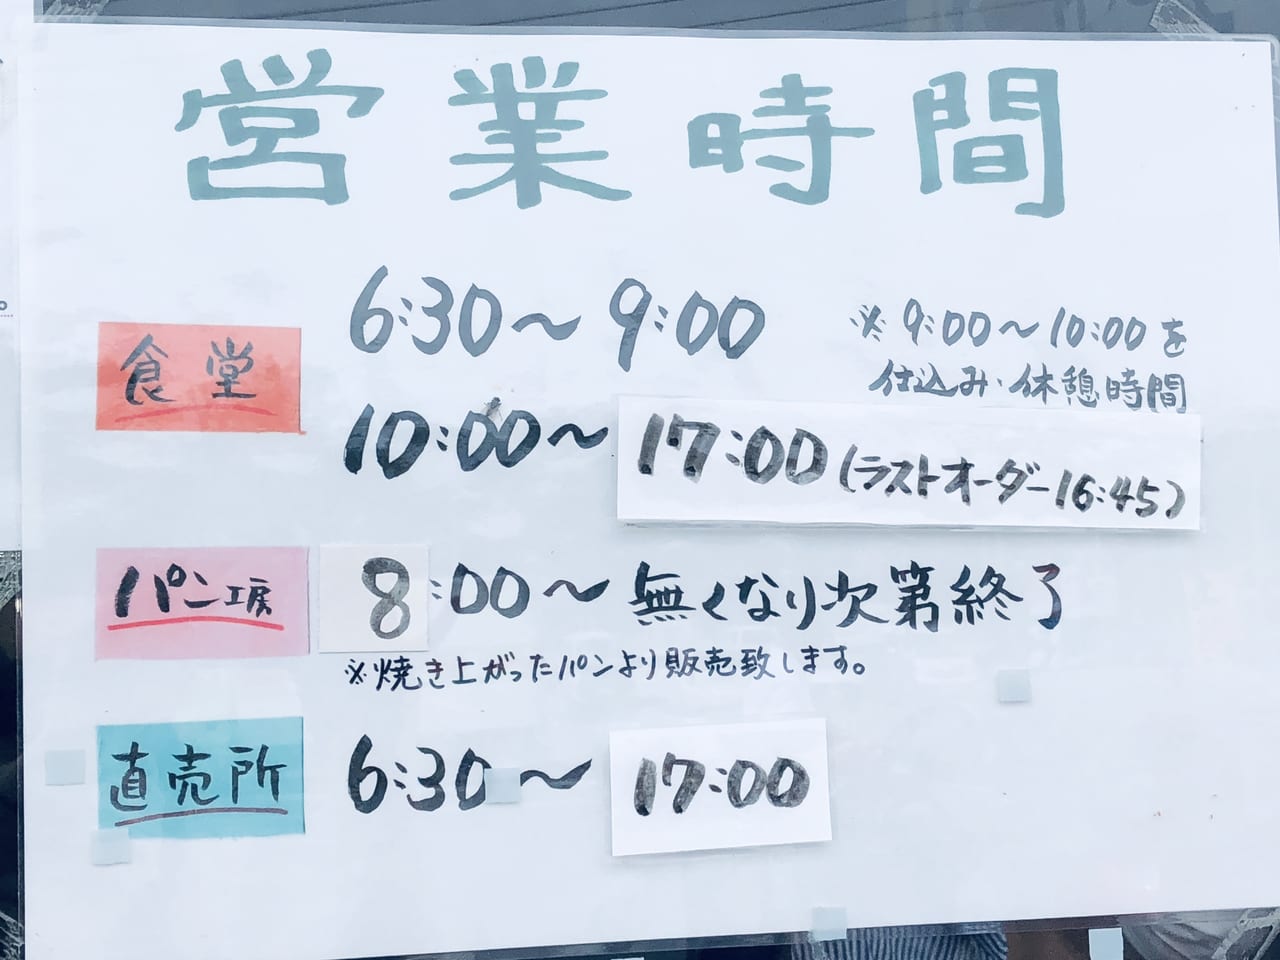 営業時間
食堂
6:30～9:00
※9:00～10:00を
仕込み・休憩時間
10:00～17:00(ラストオーダー16:45)
パン工房
8:00～無くなり次第終了
※焼き上がったパンより販売致します。
直売所
6:30～17:00